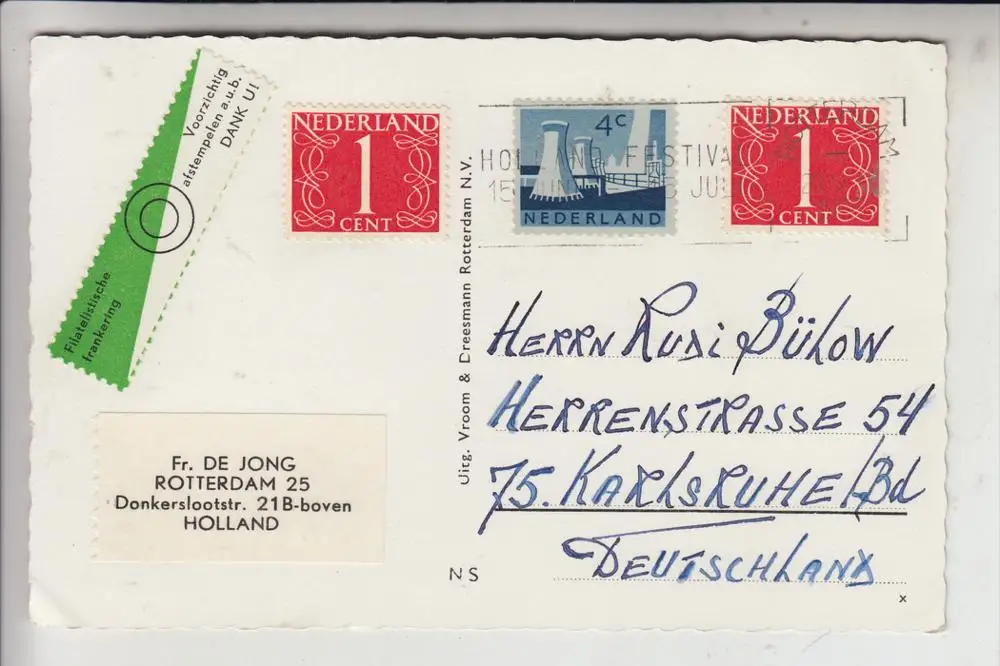 Voorzichtig
afstempelen a.u.b.
DANK U!
Filatelistische
frankering
NEDERLAND
1
CENT
4c
NEDERLAND
NEDERLAND
1
CENT
HOLLAND FESTIVAL
15 JUNI JULI
Uitg. Vroom & Dreesmann Rotterdam N.V.
Herrn Rudi Bülow
Herrenstrasse 54
75. Karlsruhe/Bd
Deutschland
Fr. DE JONG
ROTTERDAM 25
Donkerslootstr. 21B-boven
HOLLAND
NS
x